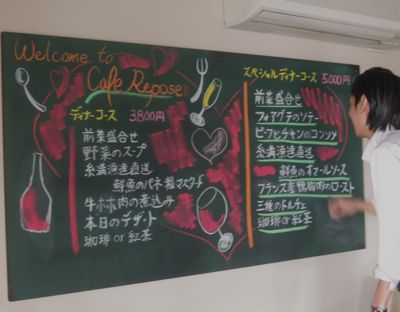 Welcome to
Cafe Repose
ディナーコース 3,800円
前菜盛合せ
野菜のスープ
糸満漁港直送
鮮魚のパネ 粒マスタード
牛ホホ肉の煮込み
本日のデザート
珈琲 or 紅茶
スペシャルディナーコース 5,000円
前菜盛合せ
フォアグラのソテー
ビーフとチキンのコンソメ
糸満漁港直送
鮮魚のオマールソース
フランス産鴨胸肉のロースト
三種のドルチェ
珈琲 or 紅茶